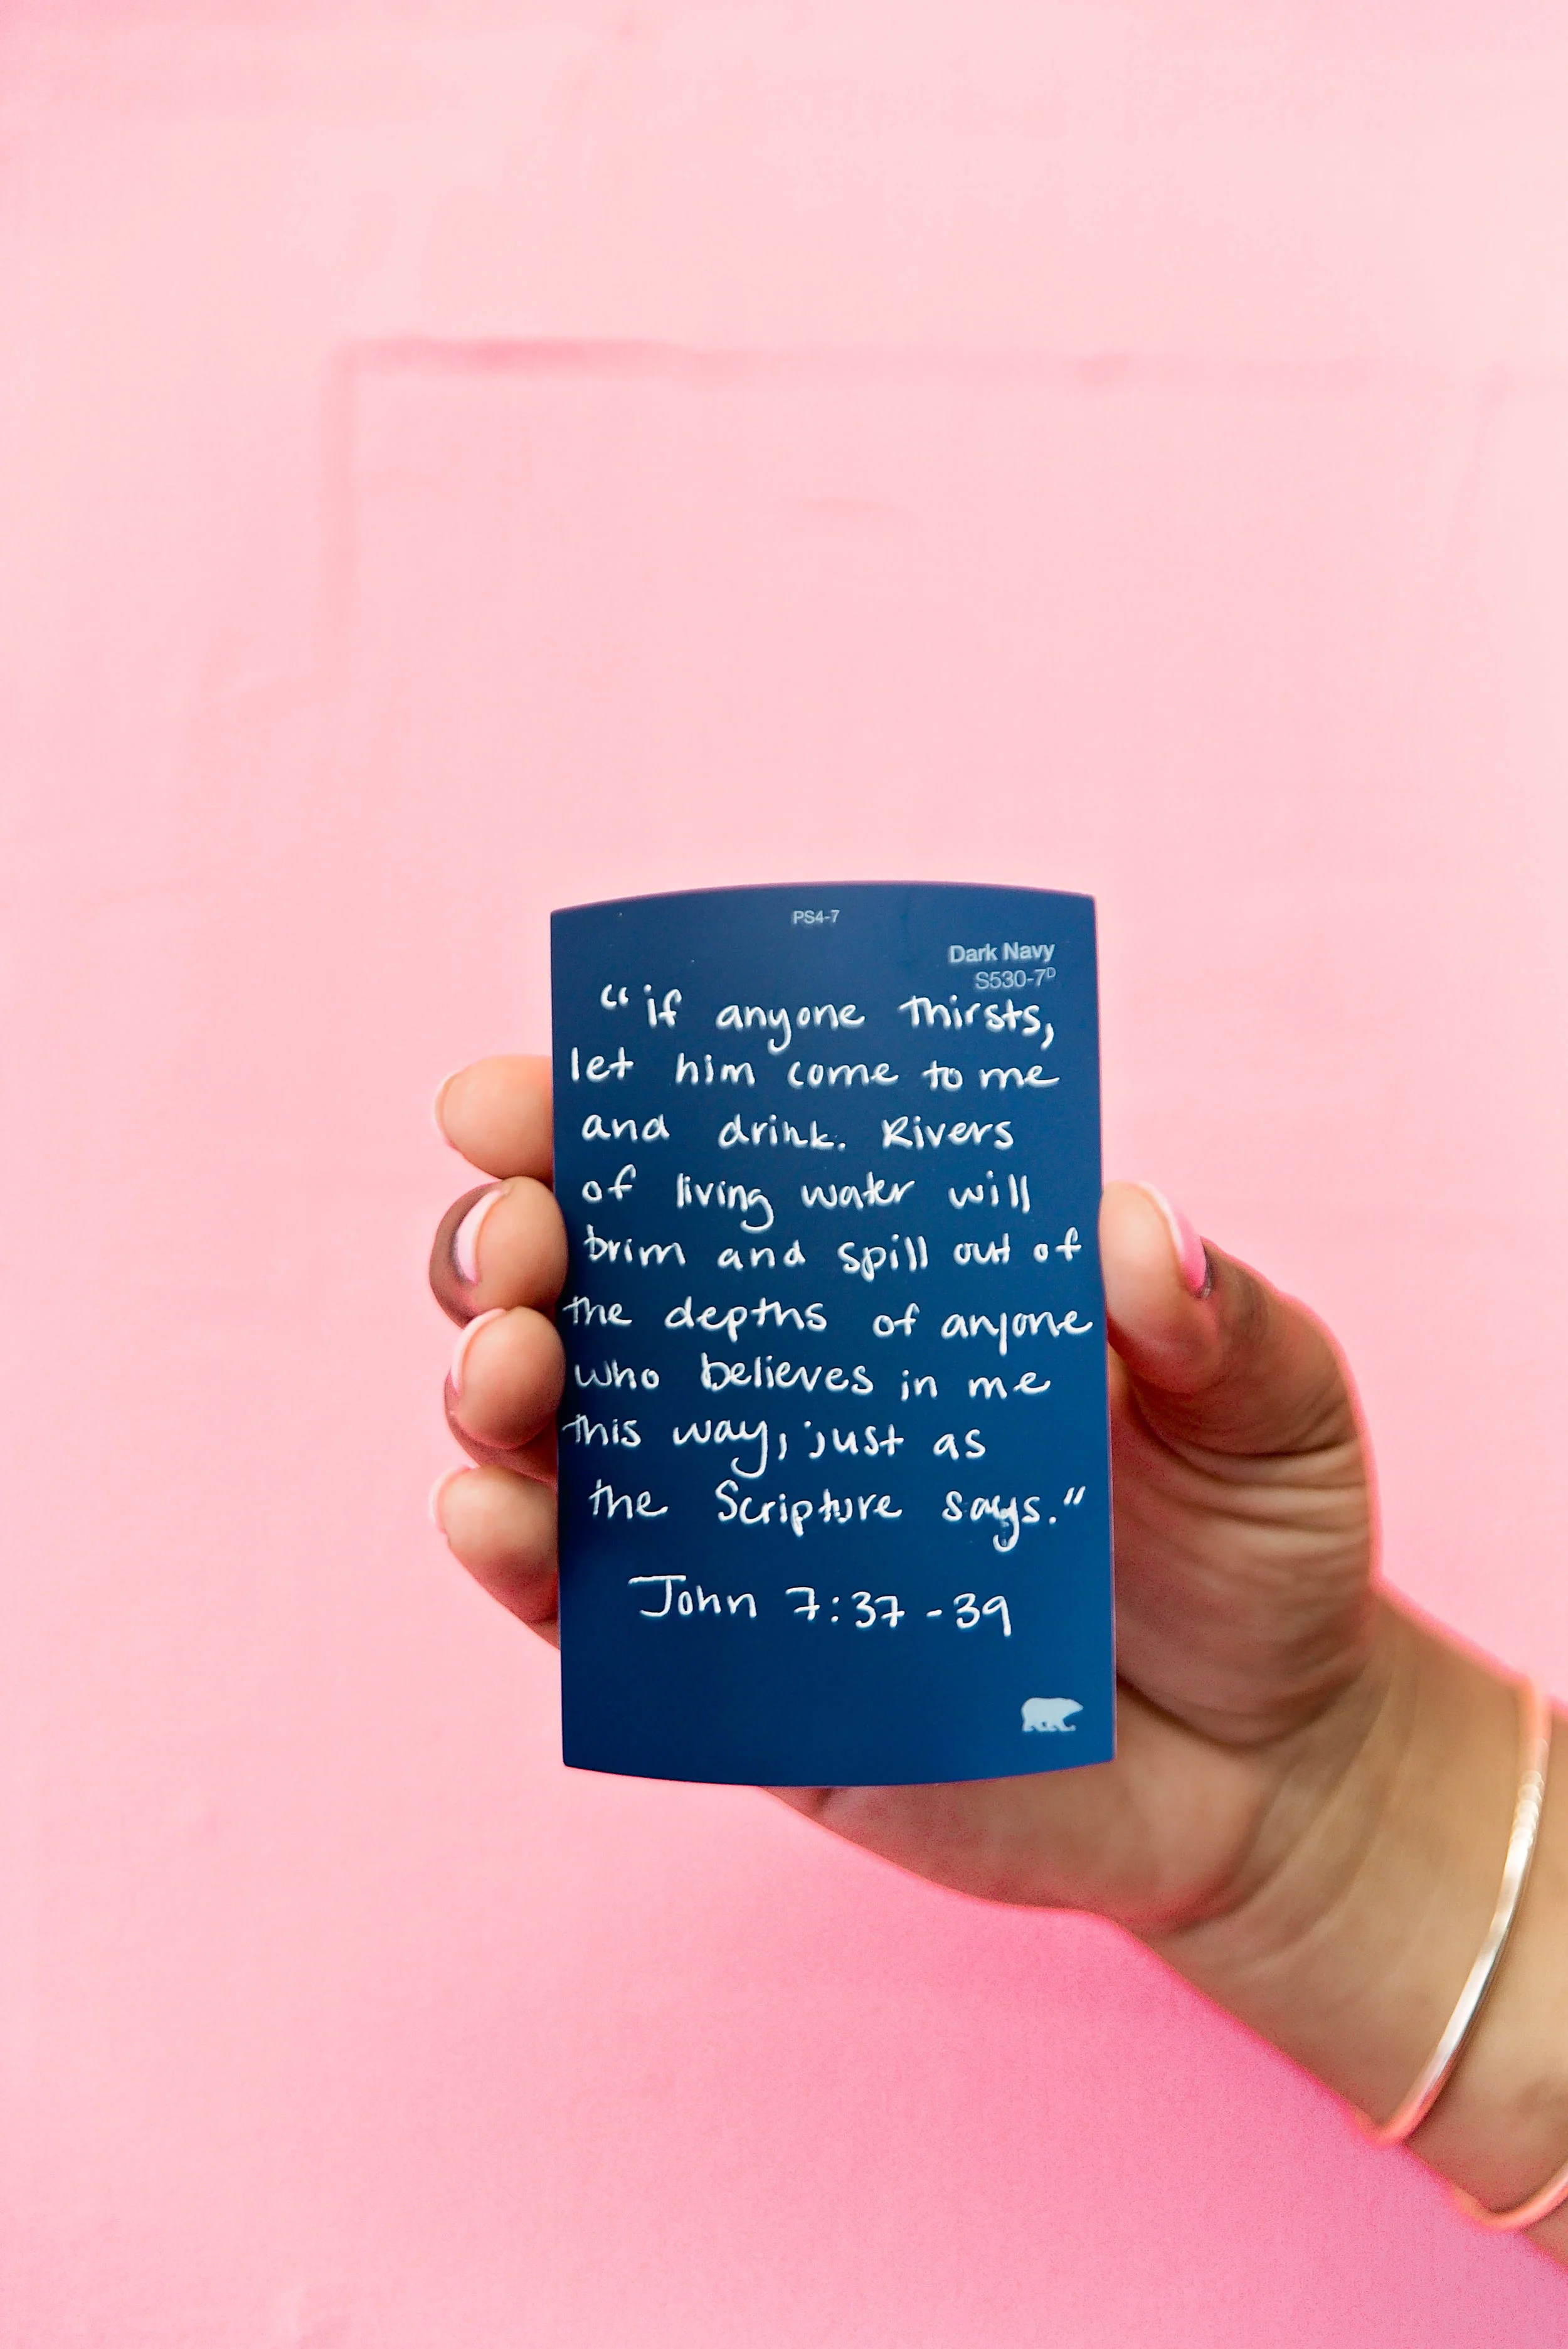 PS4-7
Dark Navy
S530-7ᴰ
“if anyone thirsts,
let him come to me
and drink. Rivers
of living water will
brim and spill out of
the depths of anyone
who believes in me
this way, just as
the Scripture says.”
John 7:37-39